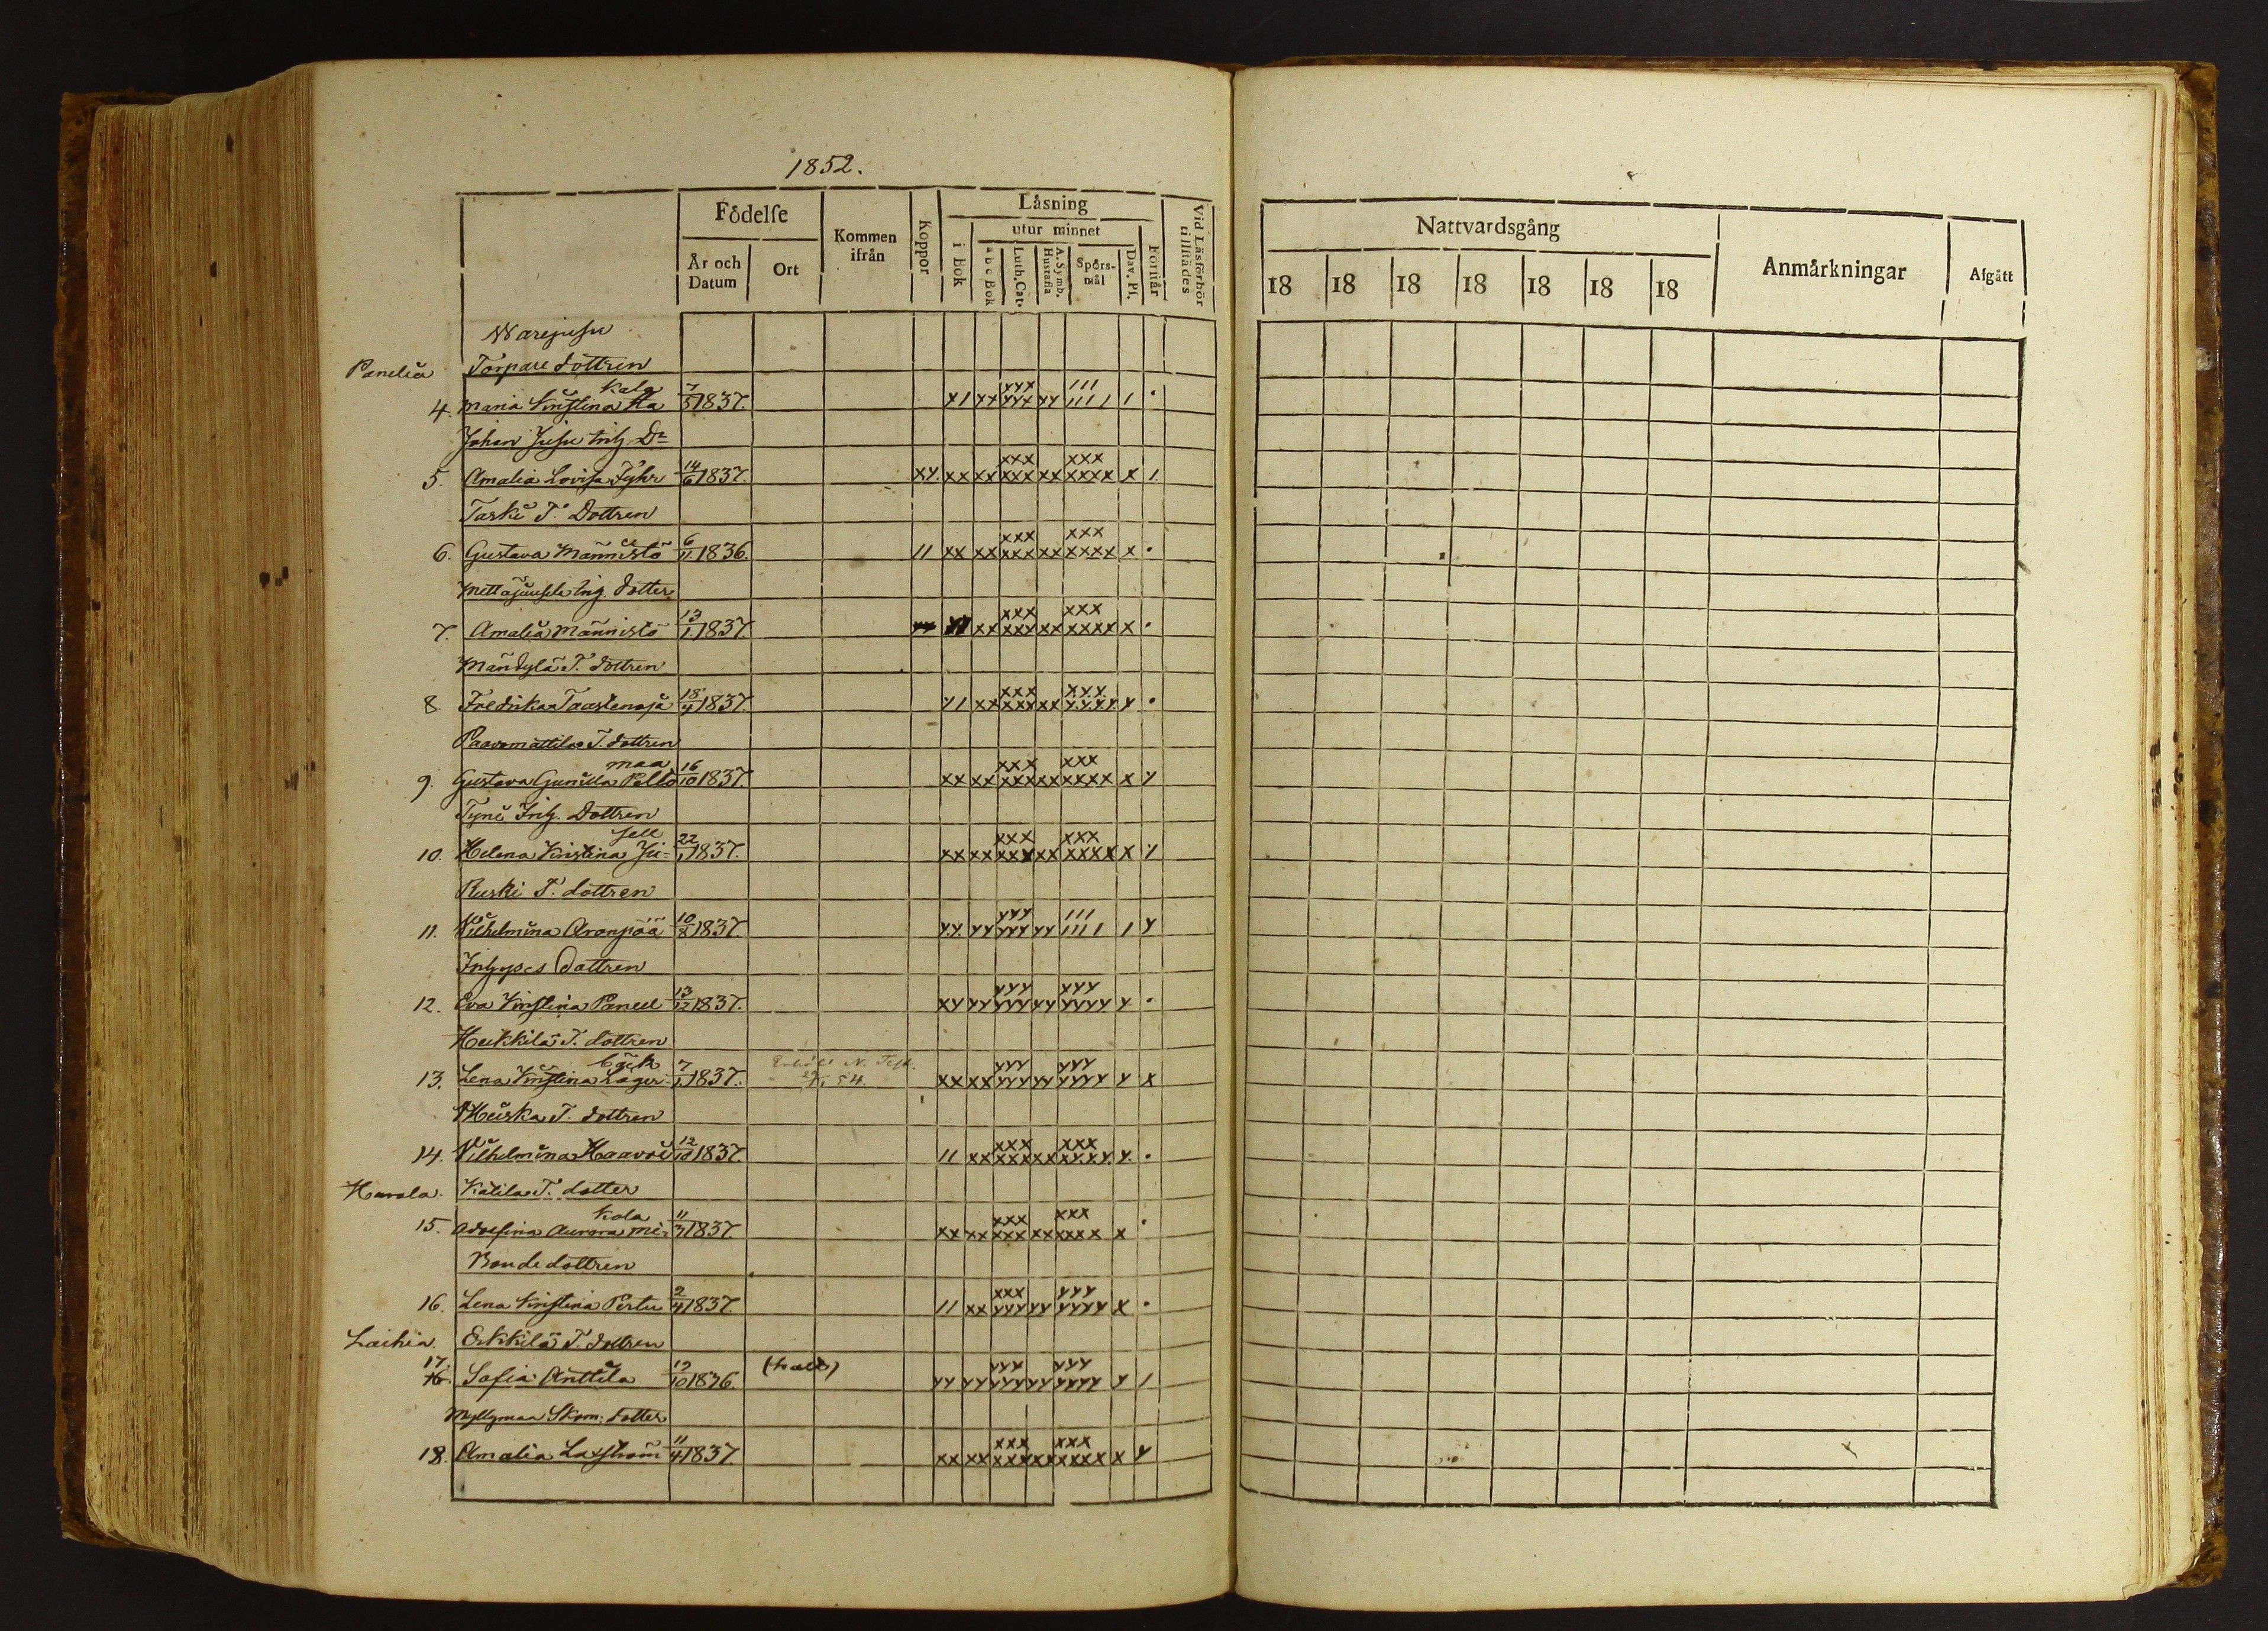 1852.
Födelse
År och Datum
Ort
Kommen ifrån
Koppor
Läsning
i Bok
utur minnet
a b c Bok
Luth. Cat.
A. Symb. Hustafla
Spörsmål
Dav. Ps.
Förstår
Vid Läsförhör tillstädes
Nattvardsgång
18 18 18 18 18 18 18
Anmärkningar
Afgått
Panelia Torpare dottren
kala
4. Maria Kristina Ha 7/5 1837. x1 xx yyy yyx yy 111 1111 1 .
Johan Jusu
5. Amalia Lovisa Fyhr 14/6 1837. xy. xx xx xxx xxx xx xxx xxxx x 1.
Taski T. Dottren
6. Gustava Männistö 6/11 1836. 11 xx xx xxx xxx xx xxx xxxx x .
Mettäjuusela Inh. dotter
7. Amalia Männistö 13/1 1837. xx xxx xxx xx xxx xxxx x .
Mändylä T. dottren
8. Fredrika Taastenoja 18/4 1837. y1 xx xxx xxx xx xxx yyyy y .
Paavomattila T. dottren
maa
9. Gustava Gunilla Pelto 16/10 1837. xx xx xxx xxx xx xxx xxxx x y
Tyni Inh. Dottren
sell
10. Helena Kristina Ju- 22/1 1837. xx xx xxx xxx xx xxx xxxx x y
Ruski T. dottren
11. Wilhelmina Aronpää 10/8 1837. yy yy yyy yyy yy 111 1111 1 y
Inhyses Dottren
12. Eva Kristina Panell 13/12 1837. xy yy yyy yyy yy yyy yyyy y .
Heikkilä T. dottren
bäck
13. Lena Kristina Lager- 7/1 1837. xx xx yyy yyy yy yyy yyyy y x
N. Test.
54.
Heiska T. dottren
14. Wilhelmina Haavoi 12/10 1837. 11 xx xxx xxx xx xxx xxxx y .
Harola. Katila T. dotter
kola
15. Adolfina Aurora Mi- 11/3 1837. xx xx xxx xxx xx xxx xxxx x .
Bonde dottren
16. Lena Kristina Pertu 2/4 1837. 11 xx xxx yyy yy yyy yyyy x .
Laihia. Erkkilä T. dottren
17. Sofia Anttila 12/10 1836. yy yy yyy yyy yy yyy yyyy y 1
Myllymaa Skom. dotter
18. Amalia Laxström 11/4 1837. xx xx xxx xxx xx xxx xxxx x y